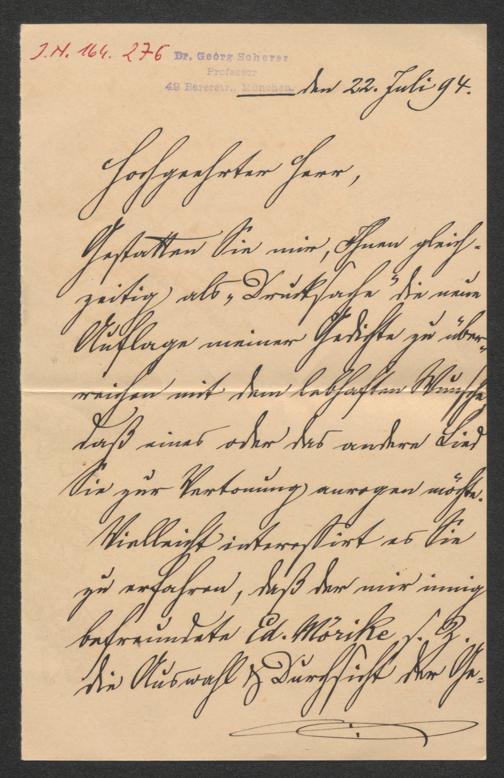 J.N. 164. 276
Dr. Georg Scherer
Professor
49 Barerstr., München.
den 22. Juli 94.
Hochgeehrter Herr,
Gestatten Sie mir, Ihnen gleich-
zeitig als „Drucksache" die neue
Auflage meiner Gedichte zu über-
reichen mit dem lebhaften Wunsche,
daß eines oder das andere Lied
Sie zur Vertonung anregen möchte.
Vielleicht interessirt es Sie
zu erfahren, daß der mir innig
befreundete Ed. Mörike s. Z.
die Auswahl & Durchsicht der Ge-